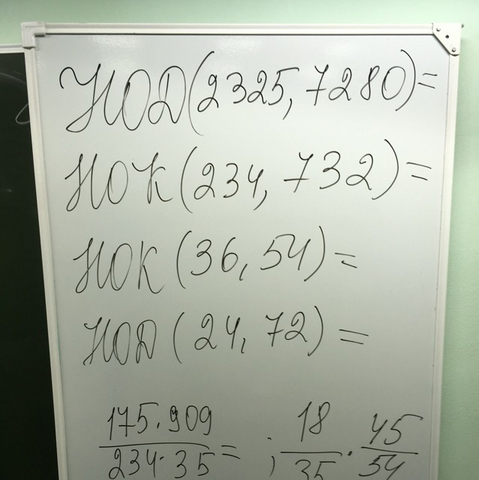 НОД(2325, 7280)=
НОК(234, 732)=
НОК(36, 54)=
НОД(24, 72)=
175·909/234·35= ; 18/35·45/54